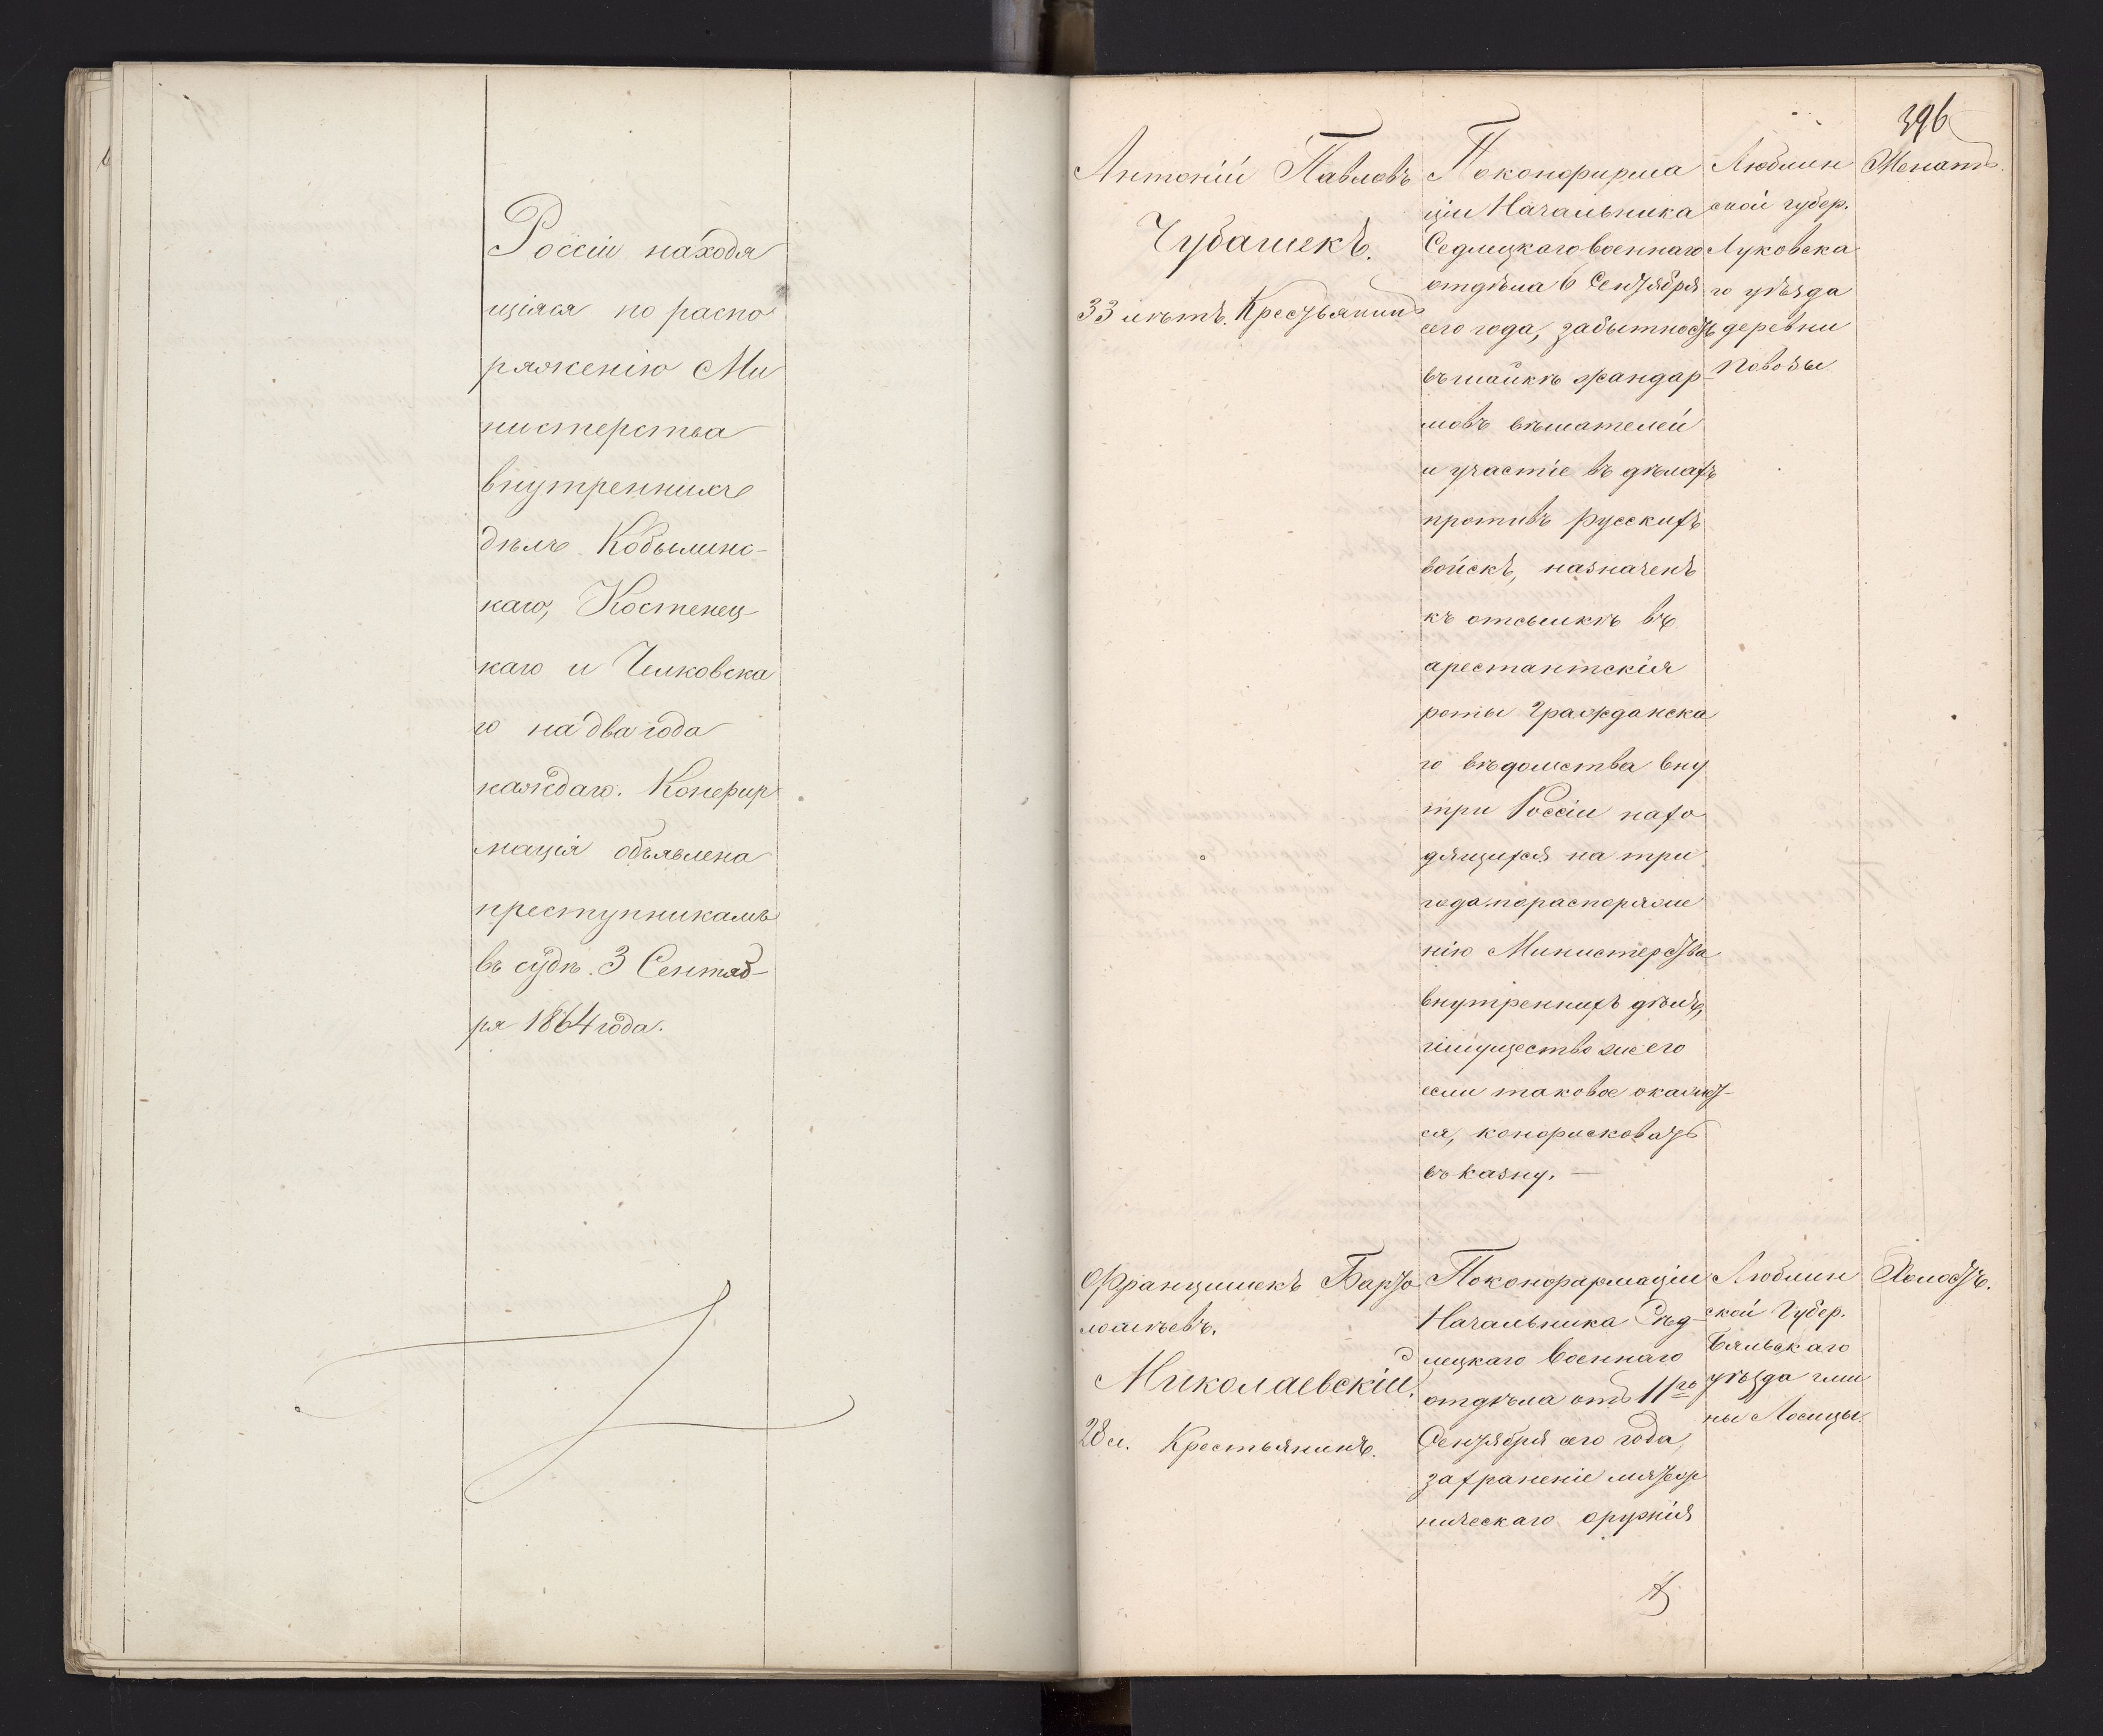 Россіи находя
щіяся по распо
ряженію Ми
нистерства
внутреннихъ
дѣлъ Кобылинс-
каго, Костенец
каго и Чилковска
го на два года
каждаго. Конфир
мація объявлена
преступникамъ
въ судѣ. 3 Сентяб-
ря 1864 года.
396
Антоній Павловъ
Чубашекъ.
33 лѣтъ. Крестьянинъ
По конфирма
ціи Начальника
Седлецкаго военнаго
отдѣла 6 Сентября
сего года, за бытность
въ шайкѣ жандар-
мовъ вѣшателей
и участіе въ дѣлахъ
противъ русскихъ
войскъ, назначенъ
къ отсылкѣ въ
арестантскія
роты Гражданска
го вѣдомства вну
три Россіи нахо
дящихся на три
года по распоряже
нію Министерства
внутреннихъ дѣлъ,
имущество же его
если таковое окажет-
ся, конфисковать
въ казну. —
Люблин
ской губер.
Луковска
го уѣзда
деревни
Повозы
Женатъ.
Францишекъ Барто
ломѣевъ.
Миколаевскій.
28 л. Крестьянинъ.
По конфармаціи
Начальника Сѣд-
лецкаго Военнаго
отдѣла отъ 11го
Сентября сего года,
за храненіе мятеж
ническаго оружія
Люблин
ской Губер.
Бяльскаго
уѣзда гми
ны Лосицы.
Холостъ.